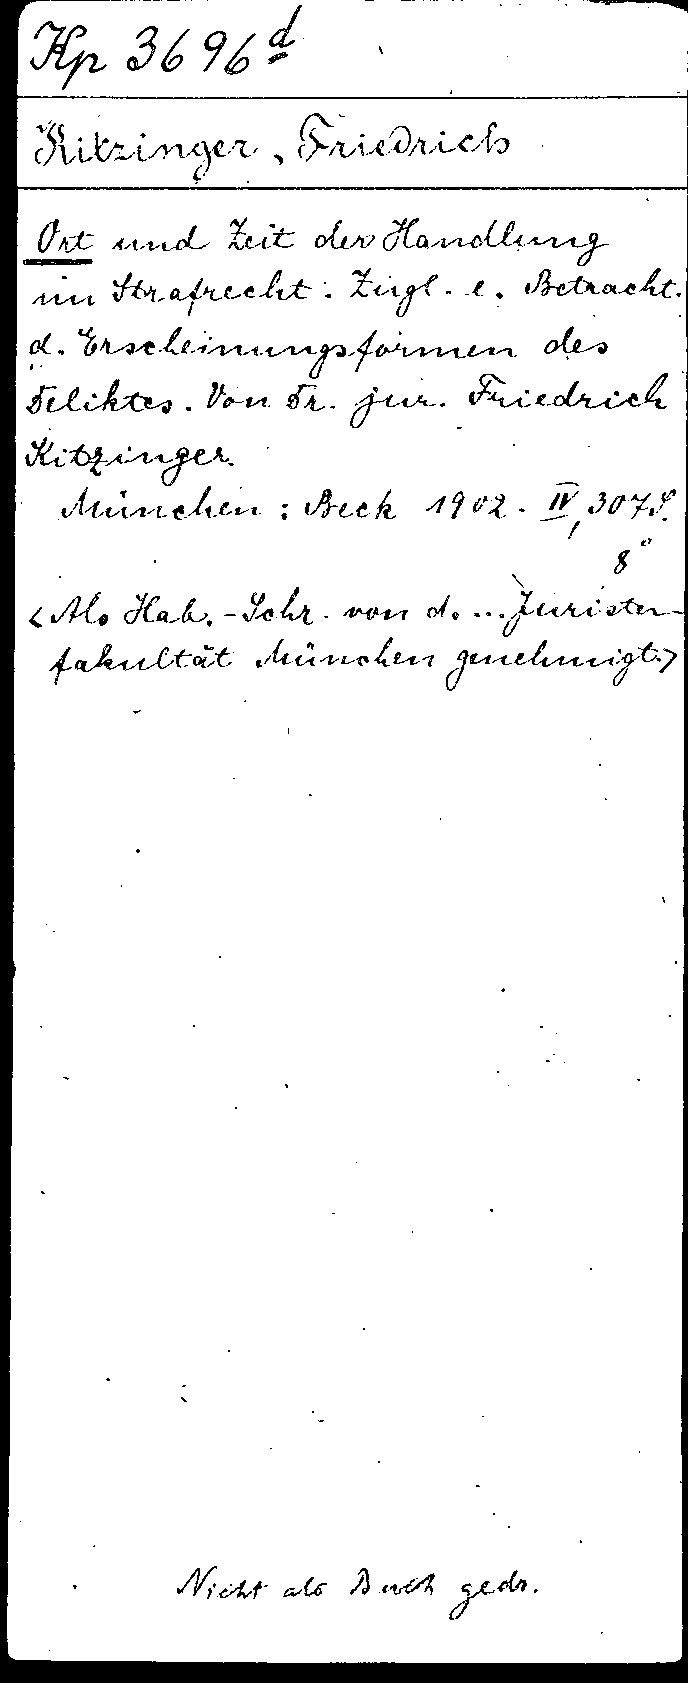 Kp 3696d
Kitzinger, Friedrich
Ort und Zeit der Handlung
im Strafrecht. Zugl. e. Betracht.
d. Erscheinungsformen des
Deliktes. Von Dr. jur. Friedrich
Kitzinger.
München: Beck 1902. IV, 307 S.
8°
<Als Hab.-Schr. von d. ... Juristen-
fakultät München genehmigt.>
Nicht als Buch gedr.